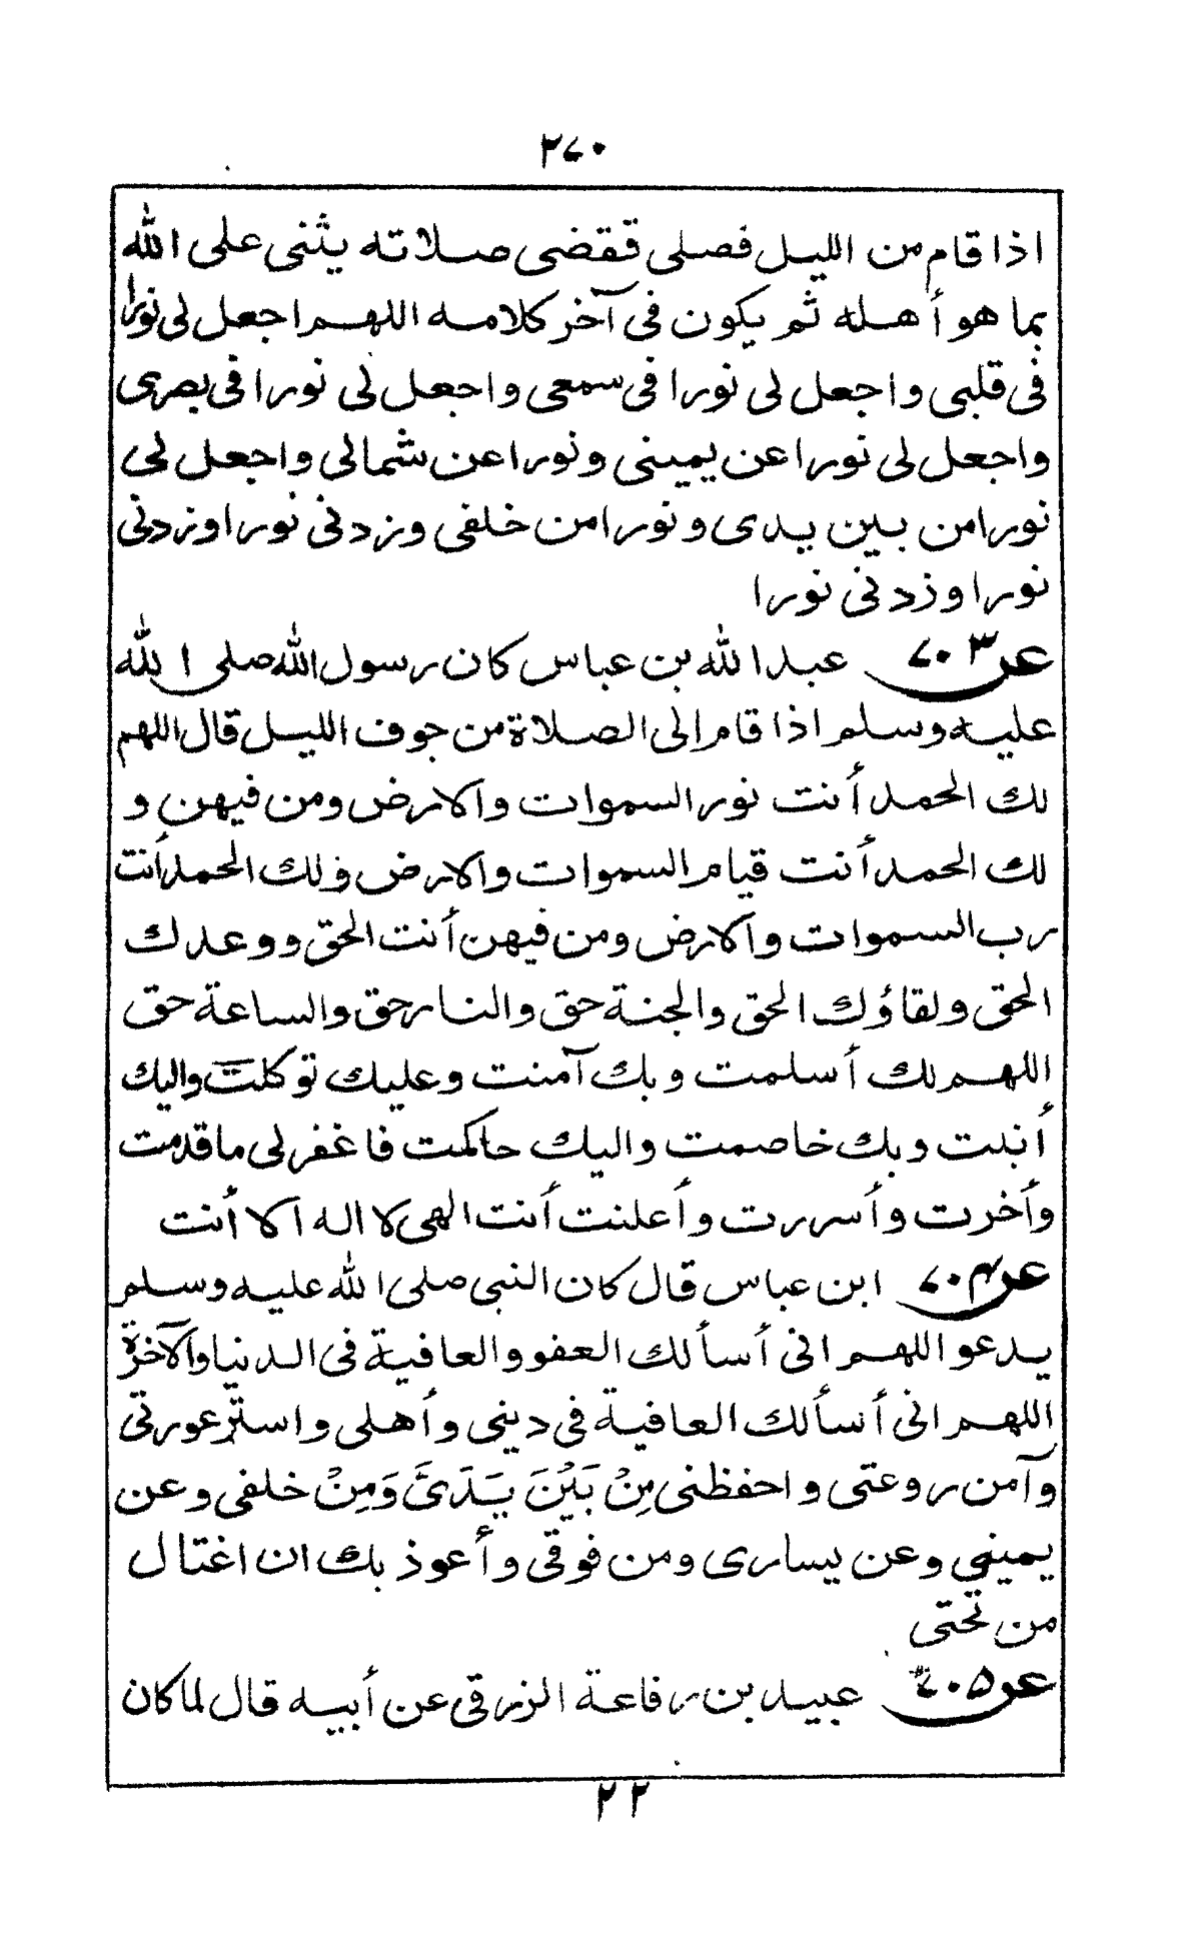 ٢٧٠
اذا قام من الليل فصلى فقضى صلاته يثنى على الله
بما هو أهله ثم يكون فى آخر كلامه اللهم اجعل لى نورا
فى قلبى واجعل لى نورا فى سمعى واجعل لى نورا فى بصرى
واجعل لى نورا عن يمينى ونورا عن شمالى واجعل لى
نورا من بين يدى ونورا من خلفى وزدنى نورا وزدنى
نورا وزدنى نورا
عن ٧٠٣ عبد الله بن عباس كان رسول الله صلى الله
عليه وسلم اذا قام الى الصلاة من جوف الليل قال اللهم
لك الحمد أنت نور السموات والارض ومن فيهن و
لك الحمد أنت قيام السموات والارض ولك الحمد أنت
رب السموات والارض ومن فيهن أنت الحق ووعدك
الحق ولقاؤك الحق والجنة حق والنار حق والساعة حق
اللهم لك أسلمت وبك آمنت وعليك توكلت واليك
أنبت وبك خاصمت واليك حاكمت فاغفر لى ما قدمت
وأخرت وأسررت وأعلنت أنت الهى لا اله الا أنت
عن ٧٠٤ ابن عباس قال كان النبى صلى الله عليه وسلم
يدعو اللهم انى أسألك العفو والعافية فى الدنيا والآخرة
اللهم انى أسألك العافية فى دينى وأهلى واستر عورتى
وآمن روعتى واحفظنى مِنْ بَيْنَ يَدَىَّ وَمِنْ خلفى وعن
يمينى وعن يسارى ومن فوقى وأعوذ بك ان اغتال
من تحتى
عن ٧٠٥ عبيد بن رفاعة الزرقى عن أبيه قال لما كان
٢٢